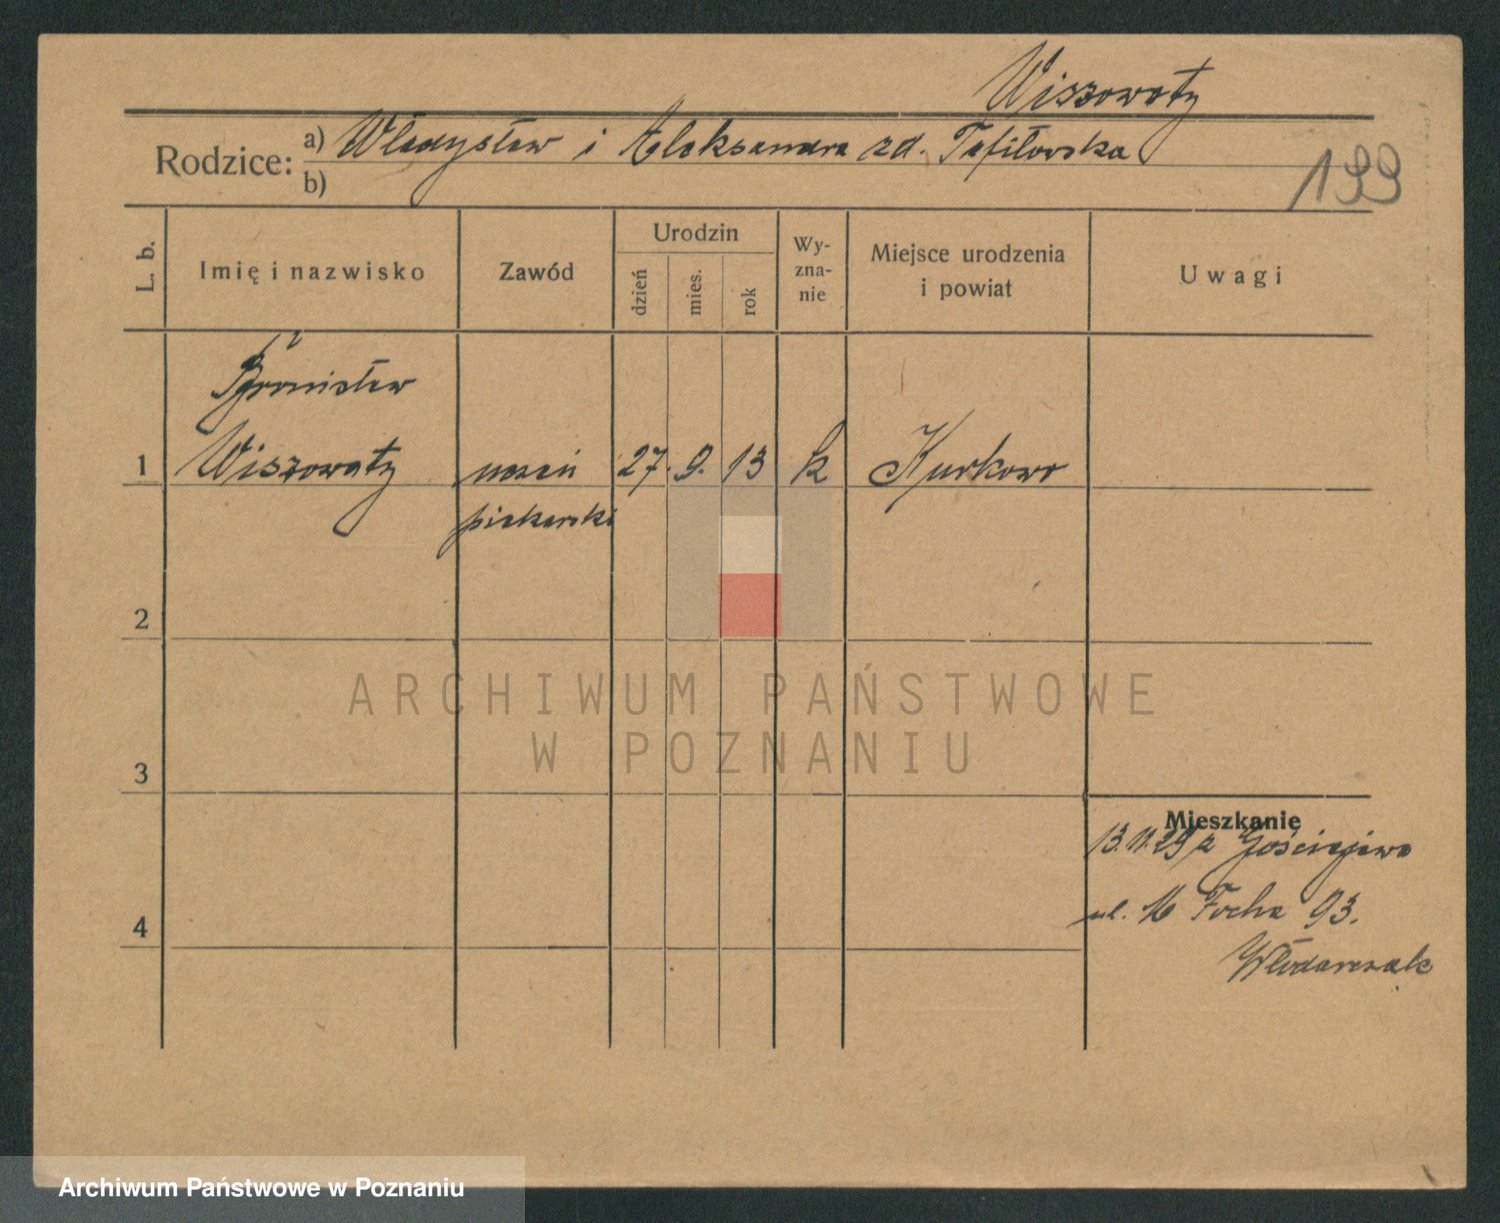 Wiszowaty
Rodzice: a) Władysław i Aleksandra zd. Tafiłowska
b)
199
L. b. Imię i nazwisko Zawód Urodzin dzień mies. rok Wy-zna-nie Miejsce urodzenia i powiat Uwagi
Bronisław
1 Wiszowaty uczeń 27. 9. 13 k Kurkowo
piekarski
2
ARCHIWUM PAŃSTWOWE
W POZNANIU
3
Mieszkanie
13.11.29 z Gościejewo
4 ul. M Focha 93.
Włodarczak
Archiwum Państwowe w Poznaniu